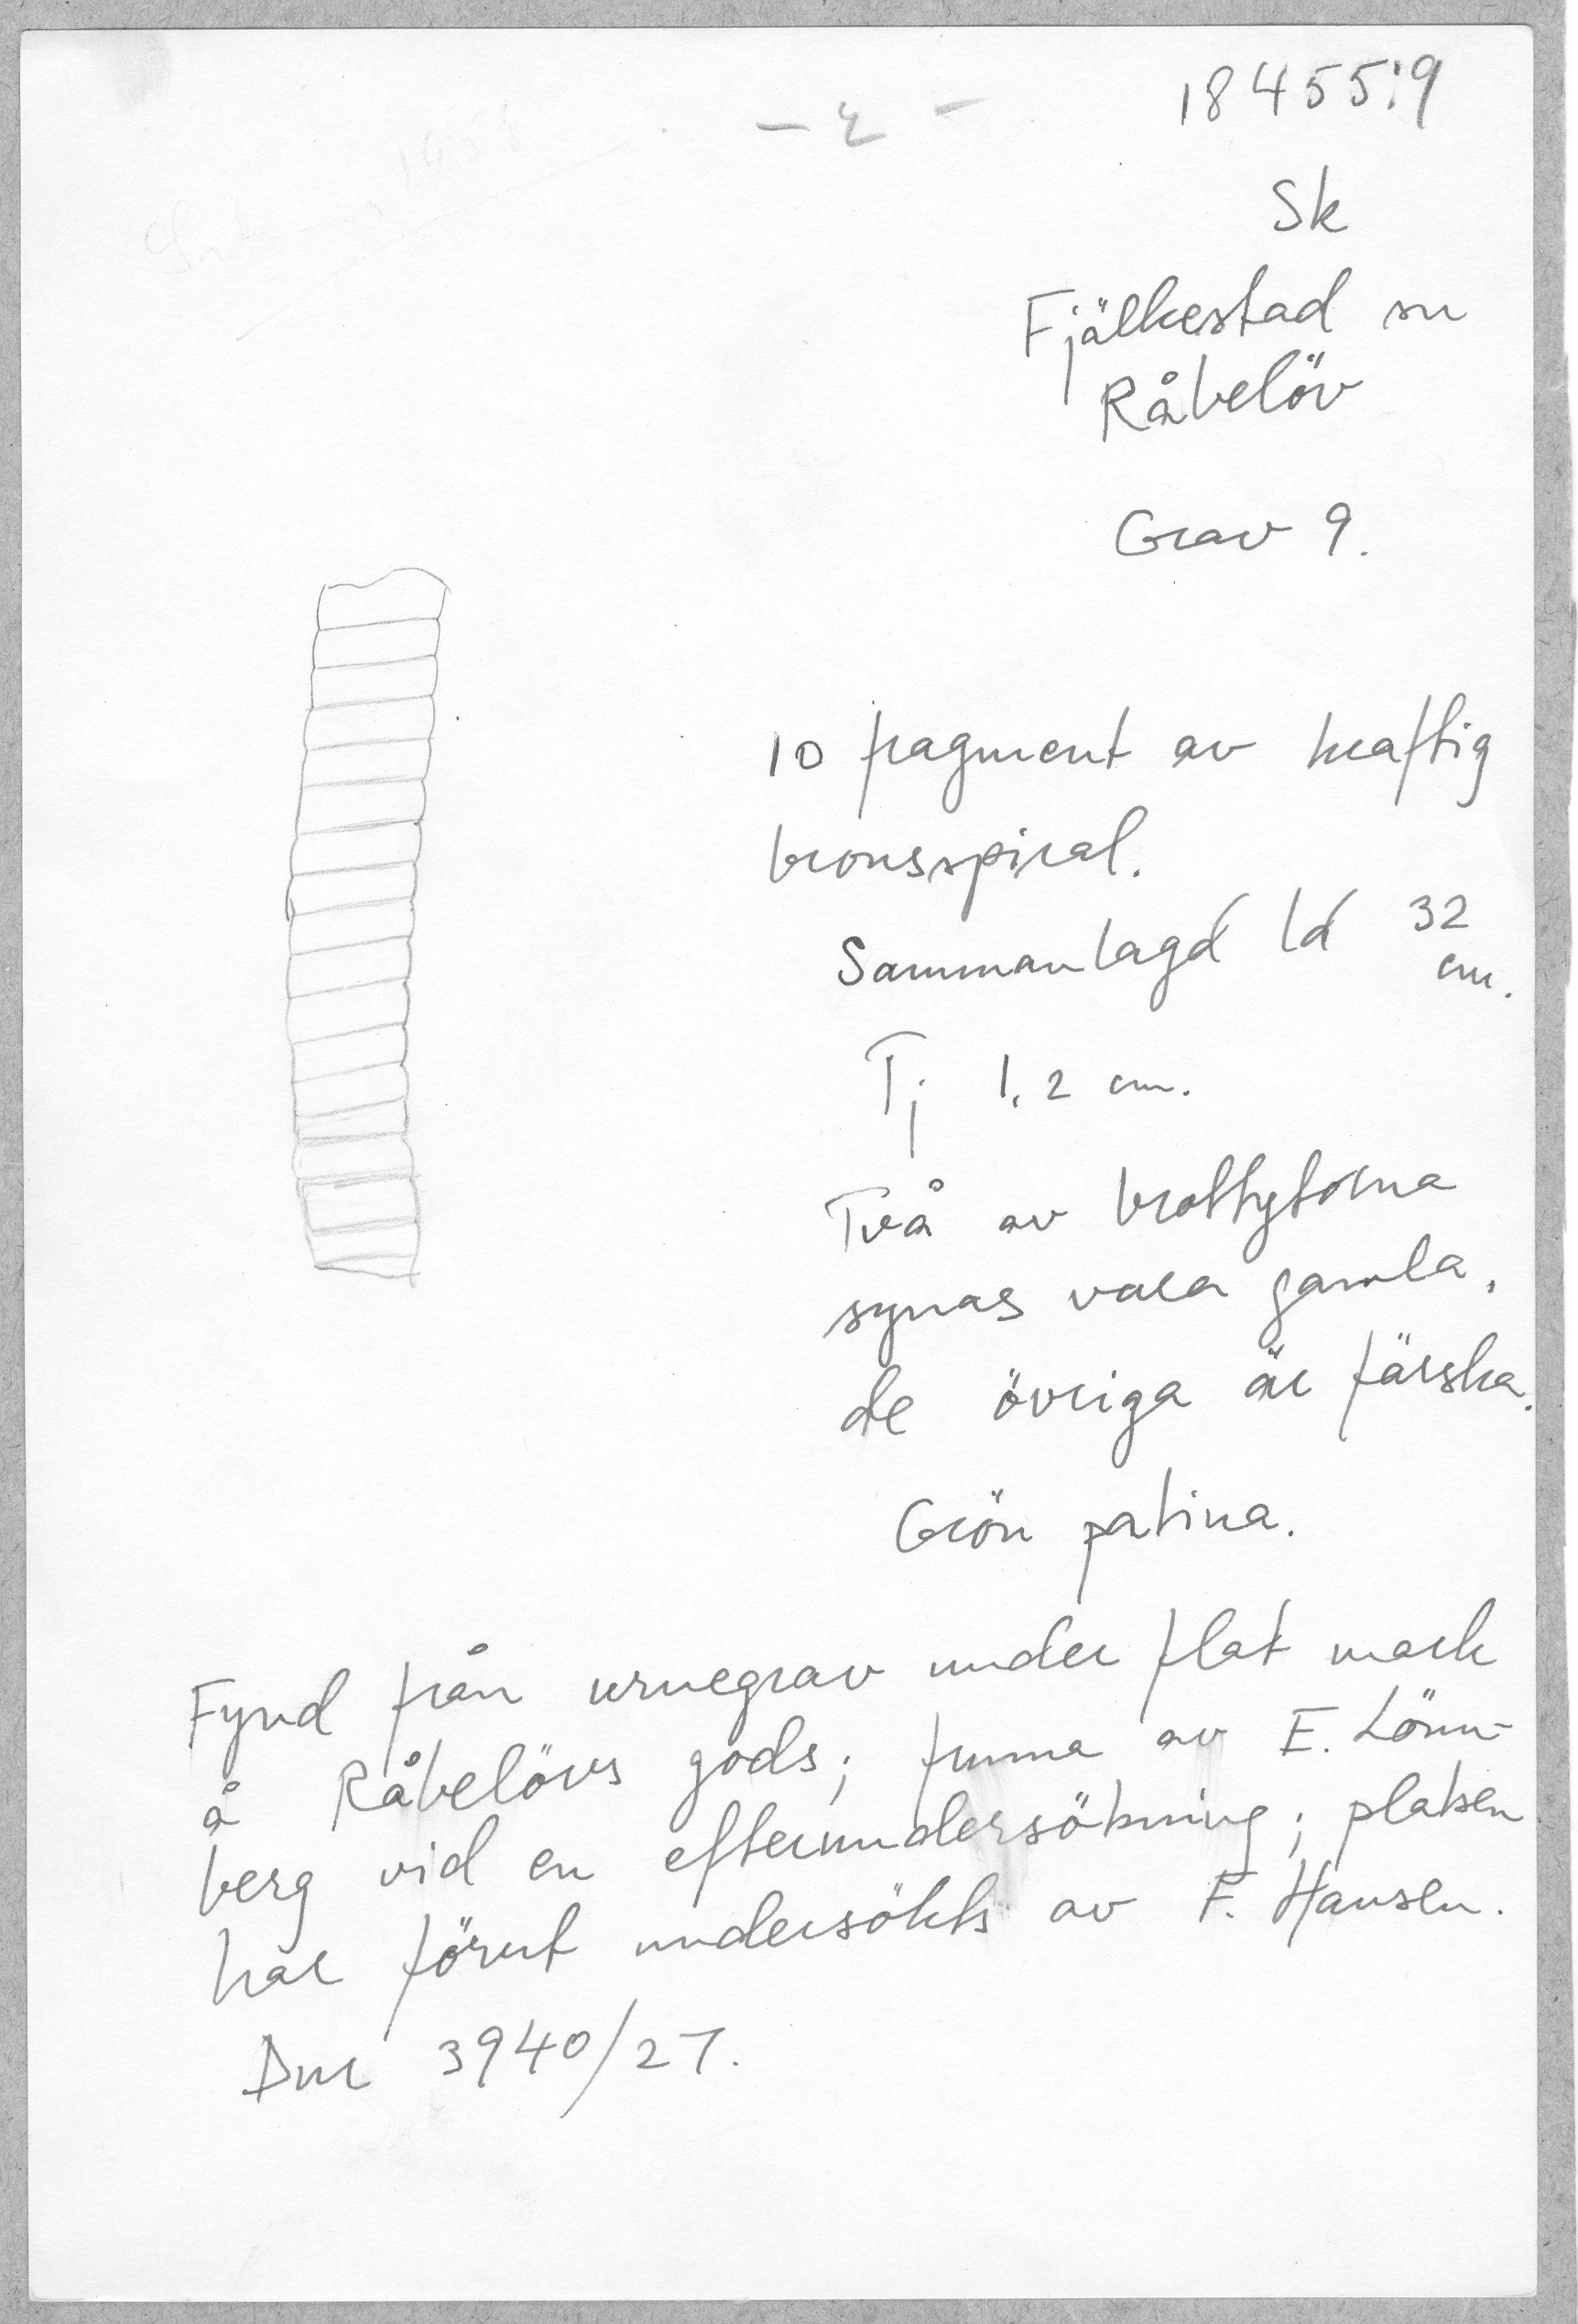 18455:9
Sk
Fjälkestad sn
Råbelöv
Grav 9.
10 fragment av kraftig
bronsspiral.
Sammanlagd ld 32
cm.
Tj 1,2 cm.
Två av brottytorna
synas vara gamla,
de övriga är färska.
Grön patina.
Fynd från urnegrav under flat mark
å Råbelövs gods; funna av E. Lönn-
berg vid en efterundersökning; platsen
har förut undersökts av F. Hansen.
Dnr 3940/27.